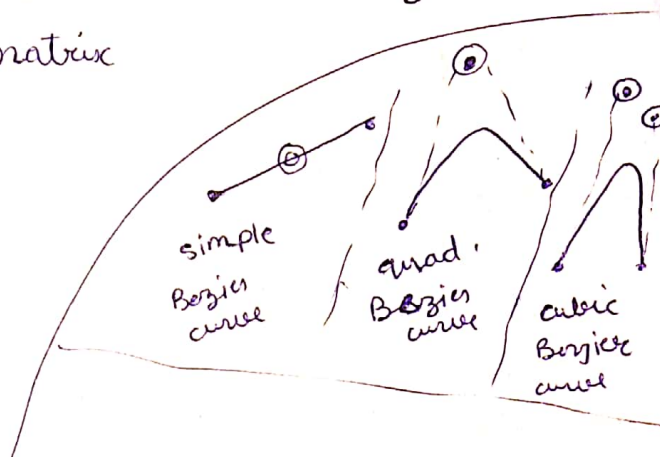 natrix
simple
Bezier
curve
quad.
Bezier
curve
cubic
Bezier
curve